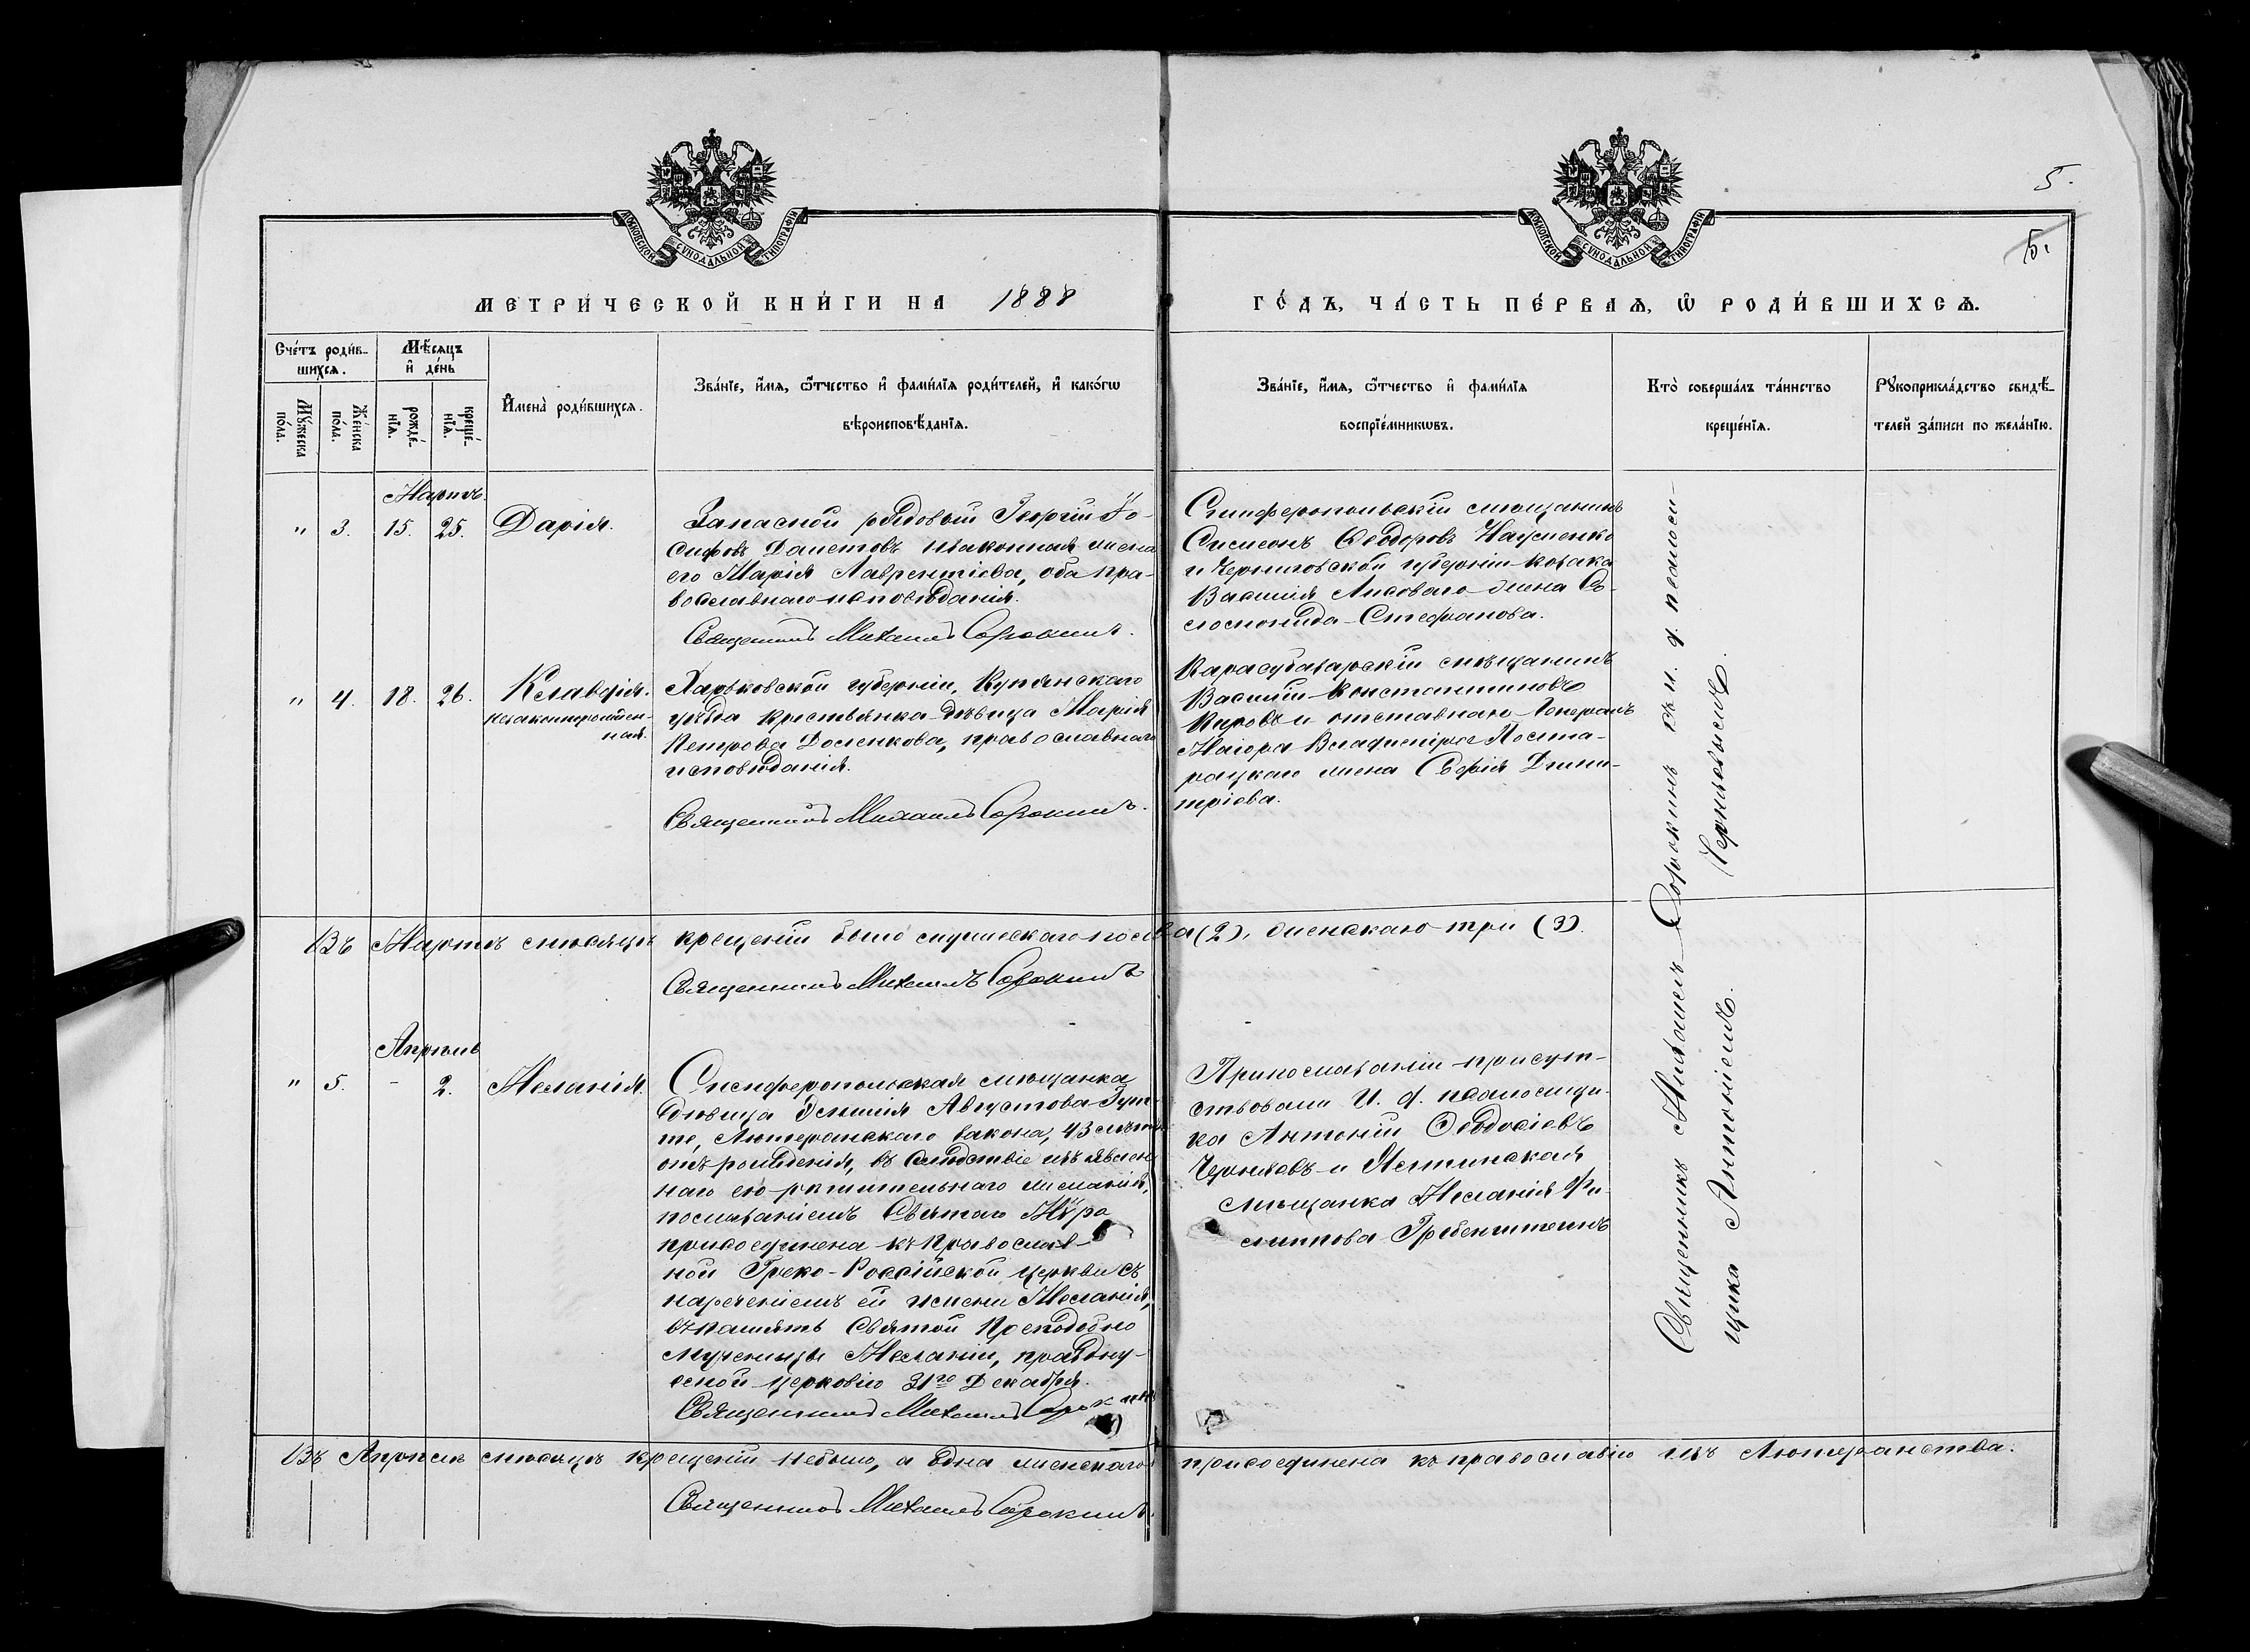 5.
5.
МОСКОВСКОЙ СУНОДАЛЬНОЙ ТИПОГРАФІИ
МОСКОВСКОЙ СУНОДАЛЬНОЙ ТИПОГРАФІИ
МЕТРИ́ЧЕСКОЙ КНИ́ГИ НА 1888
ГО́ДЪ, ЧА́СТЬ ПЕ́РВАѦ, Ѡ҆ РОДИ́ВШИХСѦ.
Сче́тъ роди́в-
шихсѧ.
Мѣ́сѧцъ
и҆ де́нь
Мꙋ́жеска
по́ла.
Же́нска
по́ла.
рожде́-
нїѧ.
креще́-
нїѧ.
И҆мена̀ роди́вшихсѧ.
Зва́нїе, и҆́мѧ, ѻ҆́тчество и҆ фами́лїѧ роди́телей, и҆ како́гѡ
вѣроисповѣ́данїѧ.
Зва́нїе, и҆́мѧ, ѻ҆́тчество и҆ фами́лїѧ
воспрїе́мникѡвъ.
Кто̀ соверша́лъ та́инство
креще́нїѧ.
Рꙋкоприкла́дство свидѣ́-
телей за́писи по жела́нїю.
Мартъ.
" 3. 15. 25. Дарія.
Запасной рядовый Георгій Іо-
сифовъ изаконная жена
его Марія Лаврентіева, оба пра-
вославнаго исповѣданія.
Священникъ Михаилъ Сорокинъ.
Симферопольскій мѣщанинъ
Симеонъ Ѳеодоровъ Науменко
и Черниговской губерніи козака
Василія Лисоваго жена Со-
ломонида Стефанова.
" 4. 18. 26. Клавдія.
незаконнорожден-
ная.
Харьковской губерніи, Купянскаго
уѣзда крестьянка дѣвица Марія
Петрова Досенкова, православнаго
исповѣданія.
Священникъ Михаилъ Сорокинъ.
Карасубазарскій мѣщанинъ
Василій Константиновъ
и отставнаго Генералъ
Маіора Владиміра
жена Софія Дими-
тріева.
Въ Мартѣ мѣсяцѣ крещеній было мужескаго пола (2), женскаго три (3).
Священникъ Михаилъ Сорокинъ
Апрѣль
" 5. - 2. Меланія.
Симферопольская мѣщанка
дѣвица Эмилія Августова
Лютеранскаго закона, 43 лѣтъ
отъ рожденія, въ слѣдствіе изъявлен-
наго ею рѣшительнаго желанія,
помазаніемъ Святаго Мѵра
присоединена къ Православ-
ной Греко-Россійской церкви съ
нареченіемъ ей имени Меланія,
въ память Святой Преподобно
мученицы Меланіи, праздну-
емой церковію 31го Декабря.
Священникъ Михаилъ Сорокинъ
При помазаніи присут-
ствовали И. д. псаломщи-
ка Антоній Ѳеодосіевъ
Черняевъ и Ялтинская
мѣщанка Меланія Фи-
липпова Гребенштейнъ
Священникъ Михаилъ Сорокинъ съ и. д. псалом-
щика Антоніемъ Черняевымъ.
Въ Апрѣлѣ мѣсяцѣ крещеній небыло, а одна женскаго присоединена къ православію изъ Лютеранства.
Священникъ Михаилъ Сорокинъ.